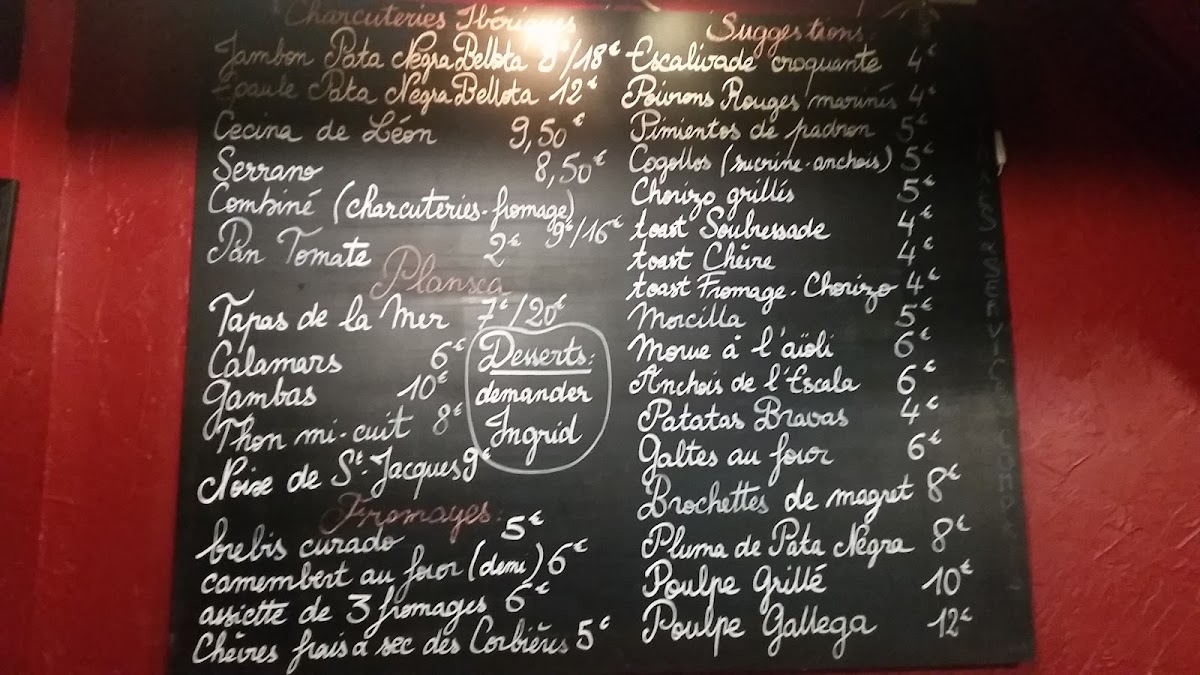 Charcuteries Ibériques
Jambon Pata Negra Bellota 9€/18€
Epaule Pata Negra Bellota 12€
Cecina de Léon 9,50€
Serrano 8,50€
Combiné (charcuteries-fromage)
9€/16€
Pan Tomate 2€
Plansca
Tapas de la Mer 7€/20€
Calamars 6€
Gambas 10€
Thon mi-cuit 8€
Noix de St-Jacques 9€
Desserts:
demander
Ingrid
Fromages:
brebis curado 5€
camembert au four (demi) 6€
assiette de 3 fromages 6€
Chèvres frais a sec des Corbières 5€
Suggestions:
Escalivade croquante 4€
Poivrons Rouges marinés 4€
Pimientos de padron 5€
Cogollos (sucrine-anchois) 5€
Chorizo grillés 5€
toast Soubressade 4€
toast Chèvre 4€
toast Fromage-Chorizo 4€
Morcilla 5€
Morue à l'aïoli 6€
Anchois de l'Escala 6€
Patatas Bravas 4€
Galtes au four 6€
Brochettes de magret 8€
Pluma de Pata Negra 8€
Poulpe Grillé 10€
Poulpe Gallega 12€